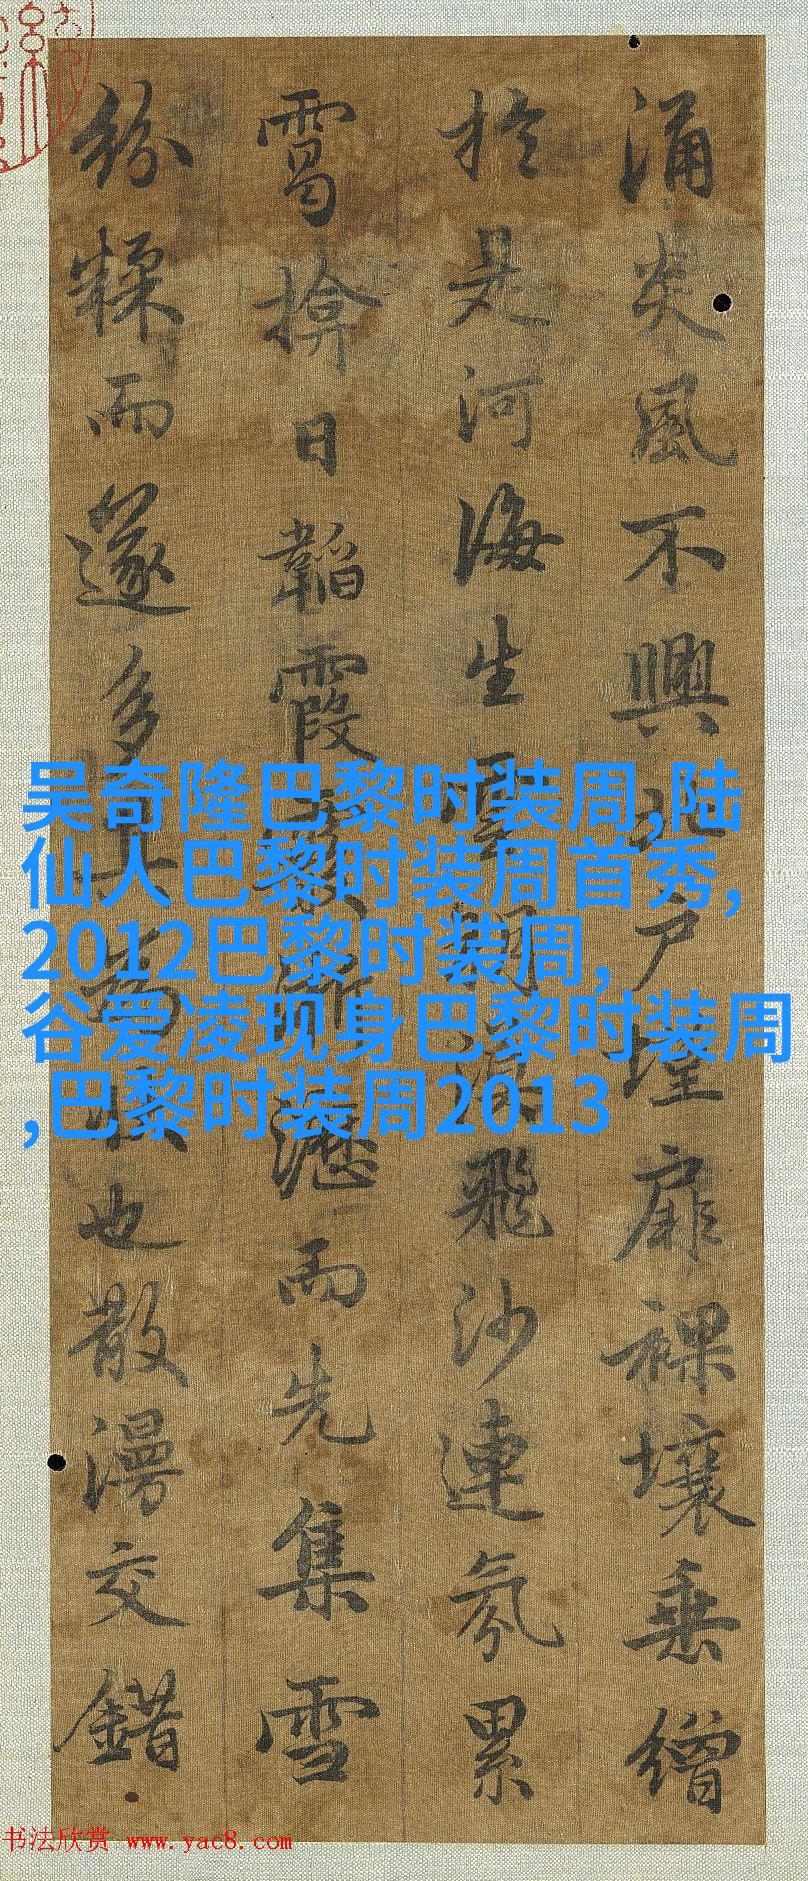 涌炎風不興北户墐扉裸壤垂繒
於是河海生雲朔漠飛沙連氛累
靄揜日韜霞霰淅瀝而先集雪
紛糅而遂多其為狀也散漫交錯
吴奇隆巴黎时装周,陆
仙人巴黎时装周首秀,
2012巴黎时装周,
谷爱凌现身巴黎时装周
,巴黎时装周2013
书法欣赏 www.yac8.com